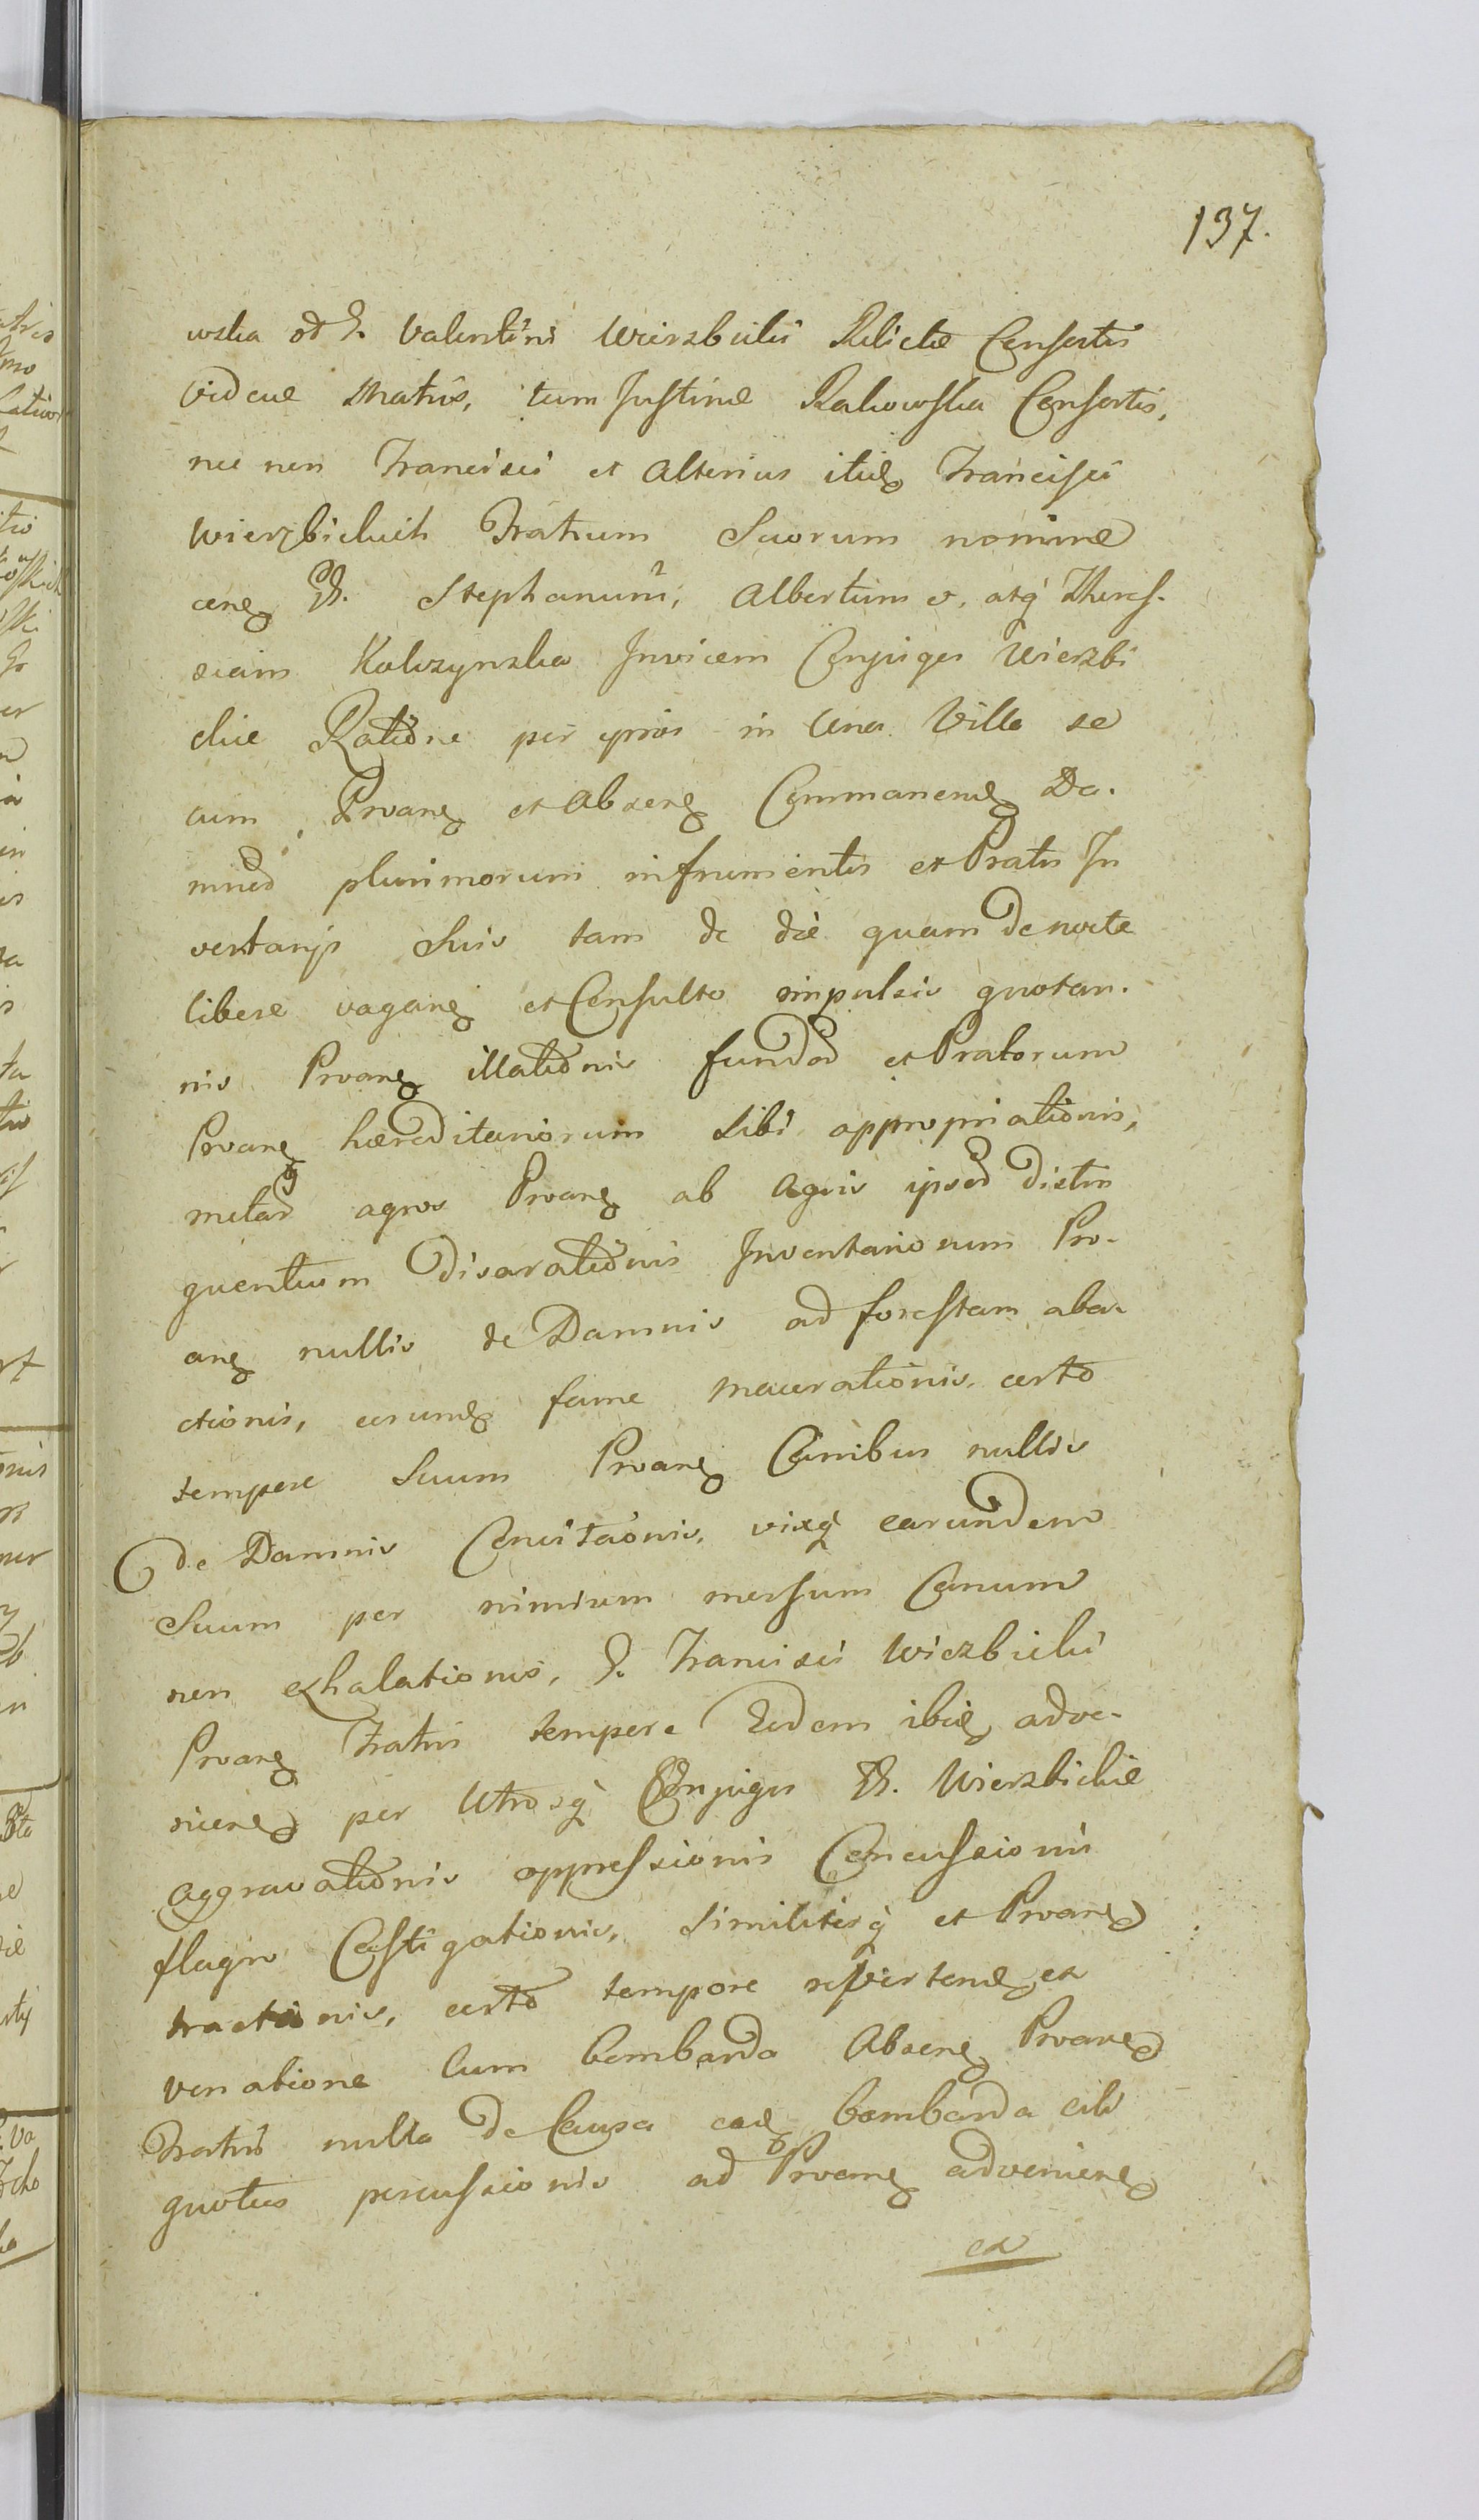 137.
wska od G. Valentini Wierzbicki Relictæ Consortis
viduæ Matris, tum Justinæ Rakowska Consortis,
nec non Francisci et Alterius itid Francisci
Wierzbickich Fratrum Suorum nomine
cend GG. Stephanum, Albertum v. atq Theres.
siam Kolczynska Invicem Conjuges Wierzbi
ckie Ratione per ipsos in Una Villa se
cum Proand et Absend Commanend Da.
mnod plurimorum in frumentis et Pratis In
ventarijs Suis tam de die quam de nocte
libere vagand et Consulto impulsis quotan.
nis Proand illationis fundod et Pratorum
Proand hæreditariorum Sibi appropriationis,
metad agros Proand ab Agris ipsod distin
guentium disarationis Inventariorum Pro.
and nullis de Damnis ad forestam aba.
ctionis, eorund fame macerationis, certo
tempore Suum Proand Canibus nullis
de Damnis Concitaonis, vixq earundem
Suum per nimium morsum Canum
non exhalationis, G. Francisci Wierzbicki
Proand Fratris tempore Eodem ibid adve.
niend per Utrosq Conjuges GG. Wierzbickie
aggravationis oppressionis Concussionis
flagro Castigationis, Similiterq et Proand
tractionis, certo tempore revertend ex
venatione Cum bombarda Absend Proand
Fratris nulla de Causa ead bombarda ali
quoties percussionis ad Proand adveniend
ex